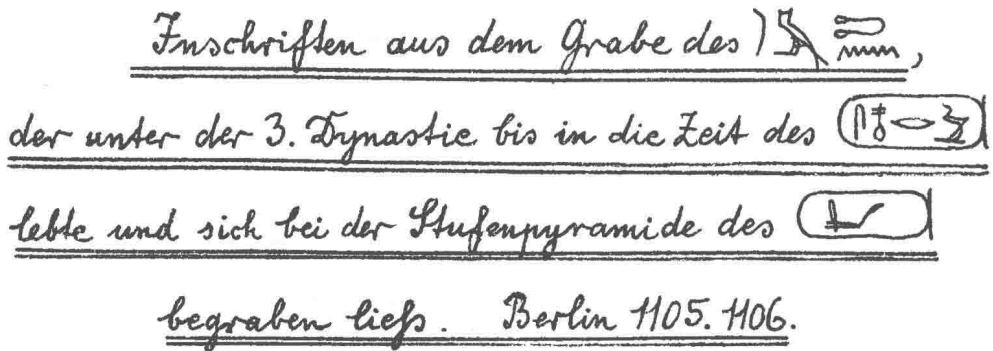 Inschriften aus dem Grabe des 𓌙𓅓𓍿𓈖,
der unter der 3. Dynastie bis in die Zeit des
lebte und sich bei der Stufenpyramide des
begraben ließ. Berlin 1105. 1106.